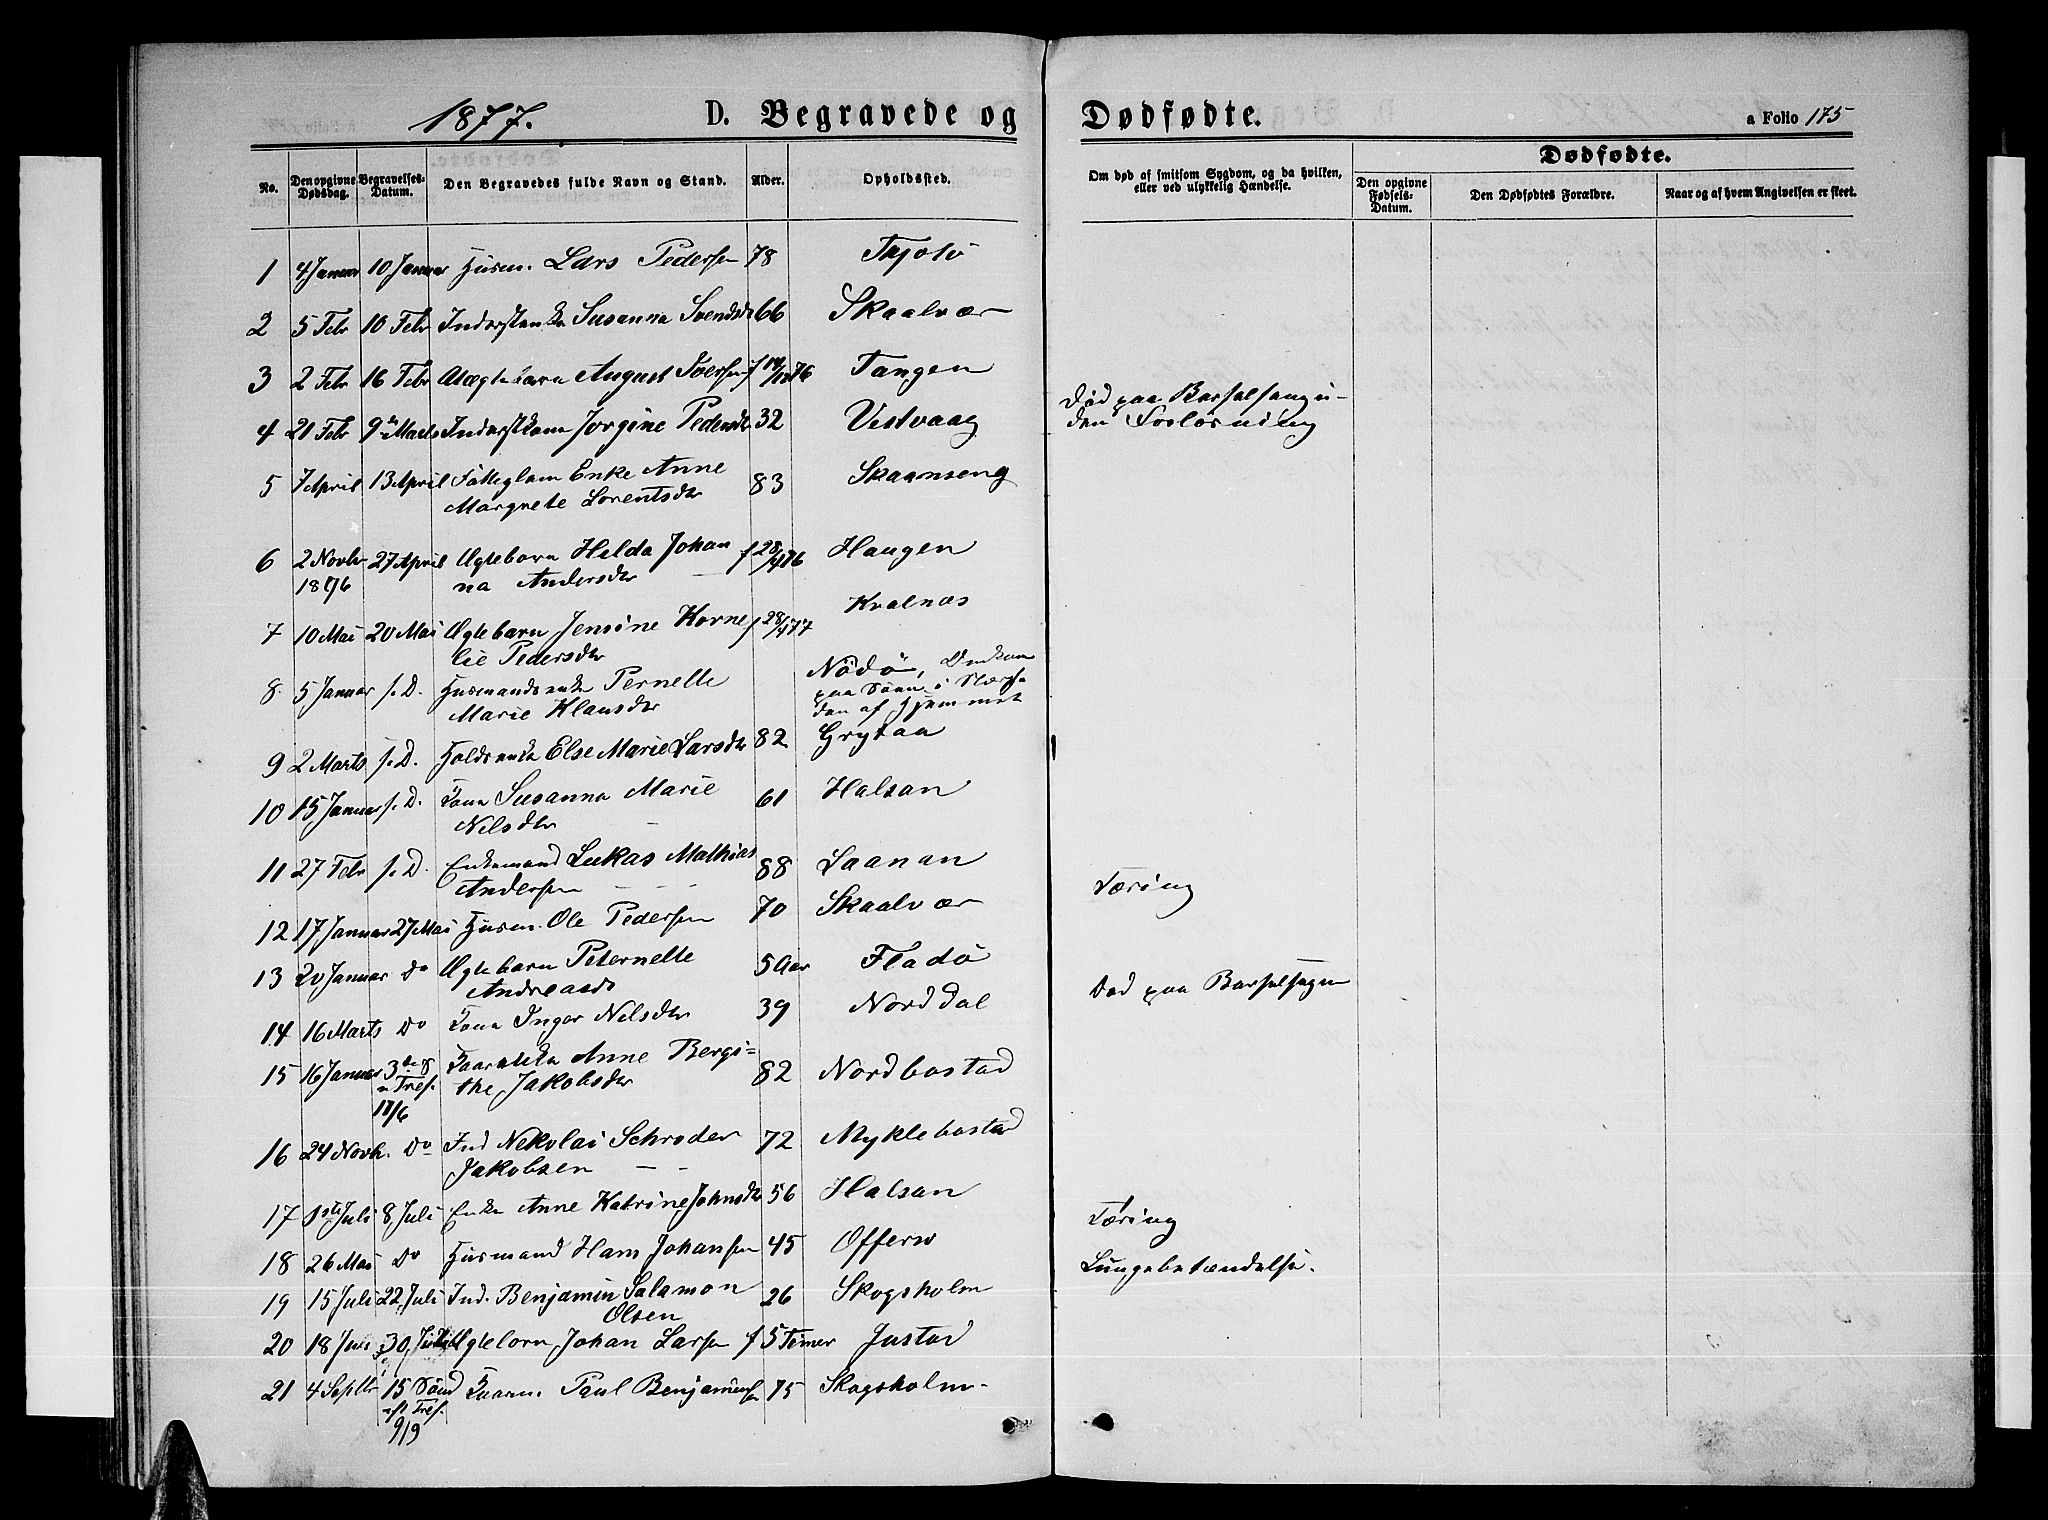 1877. D. Begravede og Dødfødte. a Folio 175
No. Den opgivne Dødsdag. Begravelses-Datum. Den Begravedes fulde Navn og Stand. Alder. Opholdssted. Om død af smitsom Sygdom, og da hvilken, eller ved ulykkelig Hændelse. Dødfødte. Den opgivne Fødsels-Datum. Den Dødfødtes Forældre. Naar og af hvem Angivelsen er skeet.
1 4 Januar 10 Januar Husm. Lars Pedersen 78 Thjotö
2 5 Febr 10 Febr Inderstenke Susanna Svendsdr 66 Skaalvær
3 2 Febr 16 Febr Uægtebarn August Iversen f 14/12 76 Tangen
4 21 Febr 9de Marts Inderstkone Jorgine Pedersdr 32 Vestvaag Död paa Barselseng u-
den Forlösning
5 7 April 13 April Fattiglem Enke Anne
Margrete Lorentsdr 83 Skaanseng
6 2 Novbr 1876 27 April Ægtebarn Hilda Johan
na Andersdr f 28/4 76 Haugen
7 10 Mai 20 Mai Ægtebarn Jensine Korne
lie Pedersdr f 28/4 77 Kvalnæs
8. 5 Januar s. D. Husmandsenke Pernelle
Marie Klausdr Nödö, Omkom
paa Söen i Nærhe
den af Hjemmet
9 2 Marts s. D. Foldsenke Else Marie Larsdr 82 Grytaa
10 15 Januar s. D. Kone Susanna Marie
Nilsdr 61 Halsan
11 27 Febr s. D. Enkemand Lukas Mathias
Andersen 88 Laanan
12 17 Januar 27 Mai Husm. Ole Pedersen 70 Skaalvær Tæring
13 20 Januar Do Ægtebarn Peternelle
Andreasd 5 Aar Fladö
14 16 Marts Do Kone Inger Nilsdr 39 Norddal Död paa Barselsengen
15 16 Januar 3die S
e Tref.
17/6 Kaarenke Anne Bergi=
the Jakobsdr 82 Nordbostad
16 24 Novb. Do Ind Nekolai Schrøder
Jakobsen 72 Myklebostad
17 1ste Juli 8 Juli Enke Anne Katrine Johnsdr 56 Halsan Tæring
18 26 Mai Do Husmand Hans Johansen 45 Offersø Lungebetændelse.
19 15 Juli 22 Juli Ind. Benjamin Salamon
Olsen 26 Skogsholm
20 18 Juni 30 Ægteborn Johan Larsen f 5 Timer Justad
21 4 Septbr 15 Sönd
eft Tref.
9/9 Kaarm. Paul Benjaminsen 75 Skogsholm